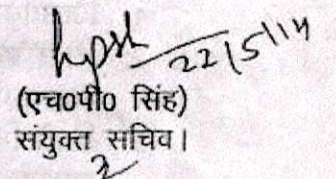 22/5/14
(एच०पी० सिंह)
संयुक्त सचिव।